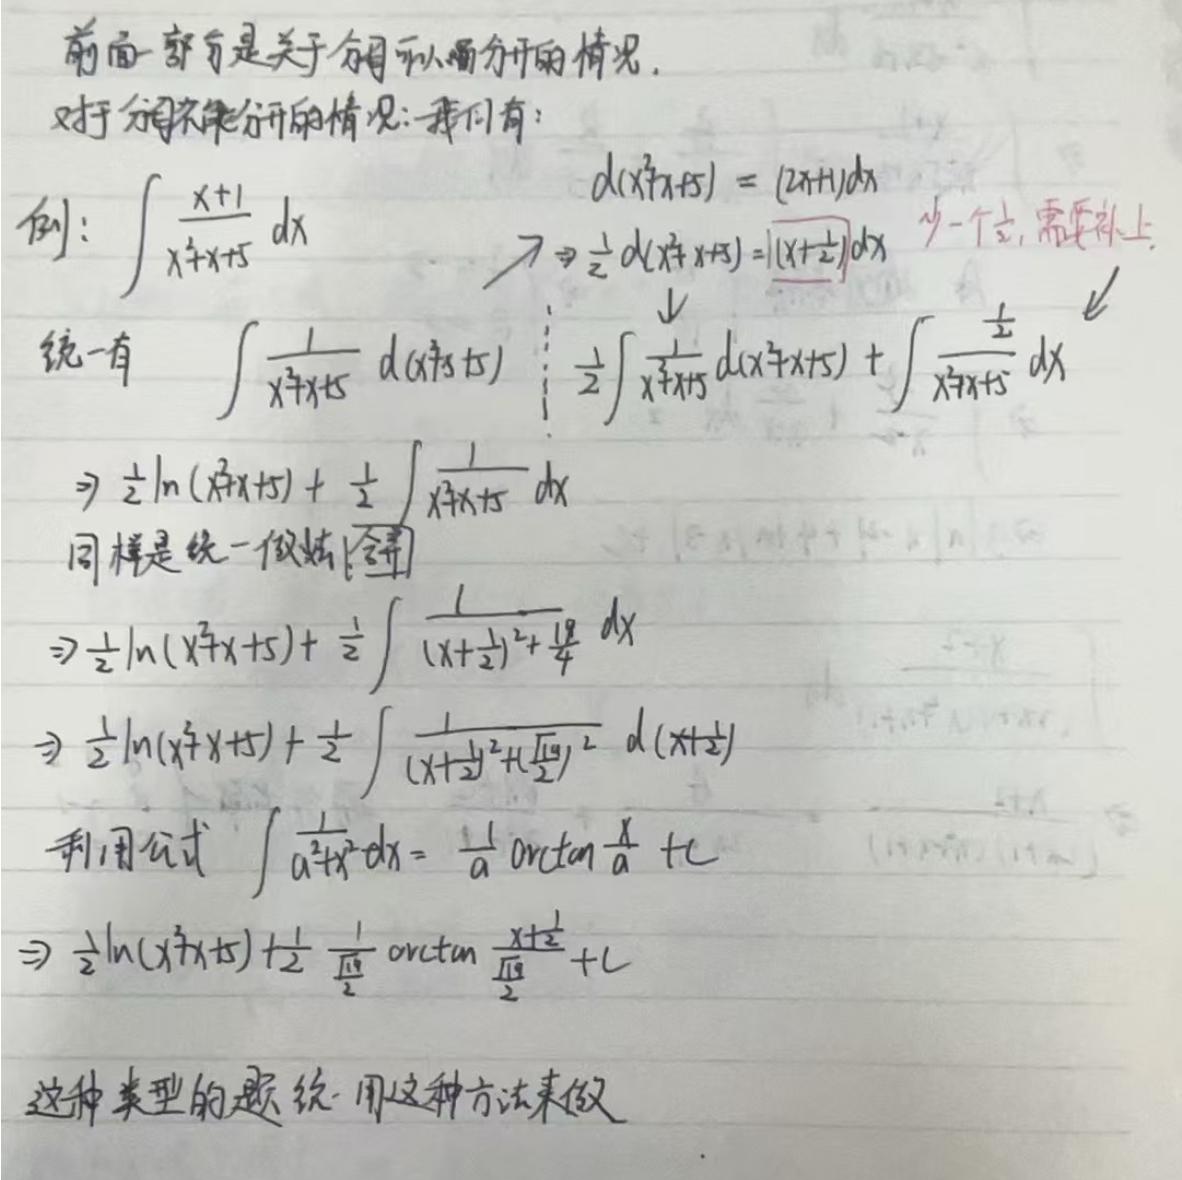 前面一部分是关于分母可以分开的情况.
对于分母不能分开的情况:我们有:
例: ∫ (x+1)/(x²+x+5) dx
d(x²+x+5) = (2x+1)dx
⇒ 1/2 d(x²+x+5) = (x+1/2)dx 少一个1/2,需要补上.
统一有 ∫ 1/(x²+x+5) d(x²+x+5) 1/2 ∫ 1/(x²+x+5) d(x²+x+5) + ∫ (1/2)/(x²+x+5) dx
⇒ 1/2 ln(x²+x+5) + 1/2 ∫ 1/(x²+x+5) dx
同样是统一做法
⇒ 1/2 ln(x²+x+5) + 1/2 ∫ 1/((x+1/2)²+19/4) dx
⇒ 1/2 ln(x²+x+5) + 1/2 ∫ 1/((x+1/2)²+(√19/2)²) d(x+1/2)
利用公式 ∫ 1/(a²+x²) dx = 1/a arctan x/a + C
⇒ 1/2 ln(x²+x+5) + 1/2 1/(√19/2) arctan (x+1/2)/(√19/2) + C
这种类型的题统一用这种方法来做